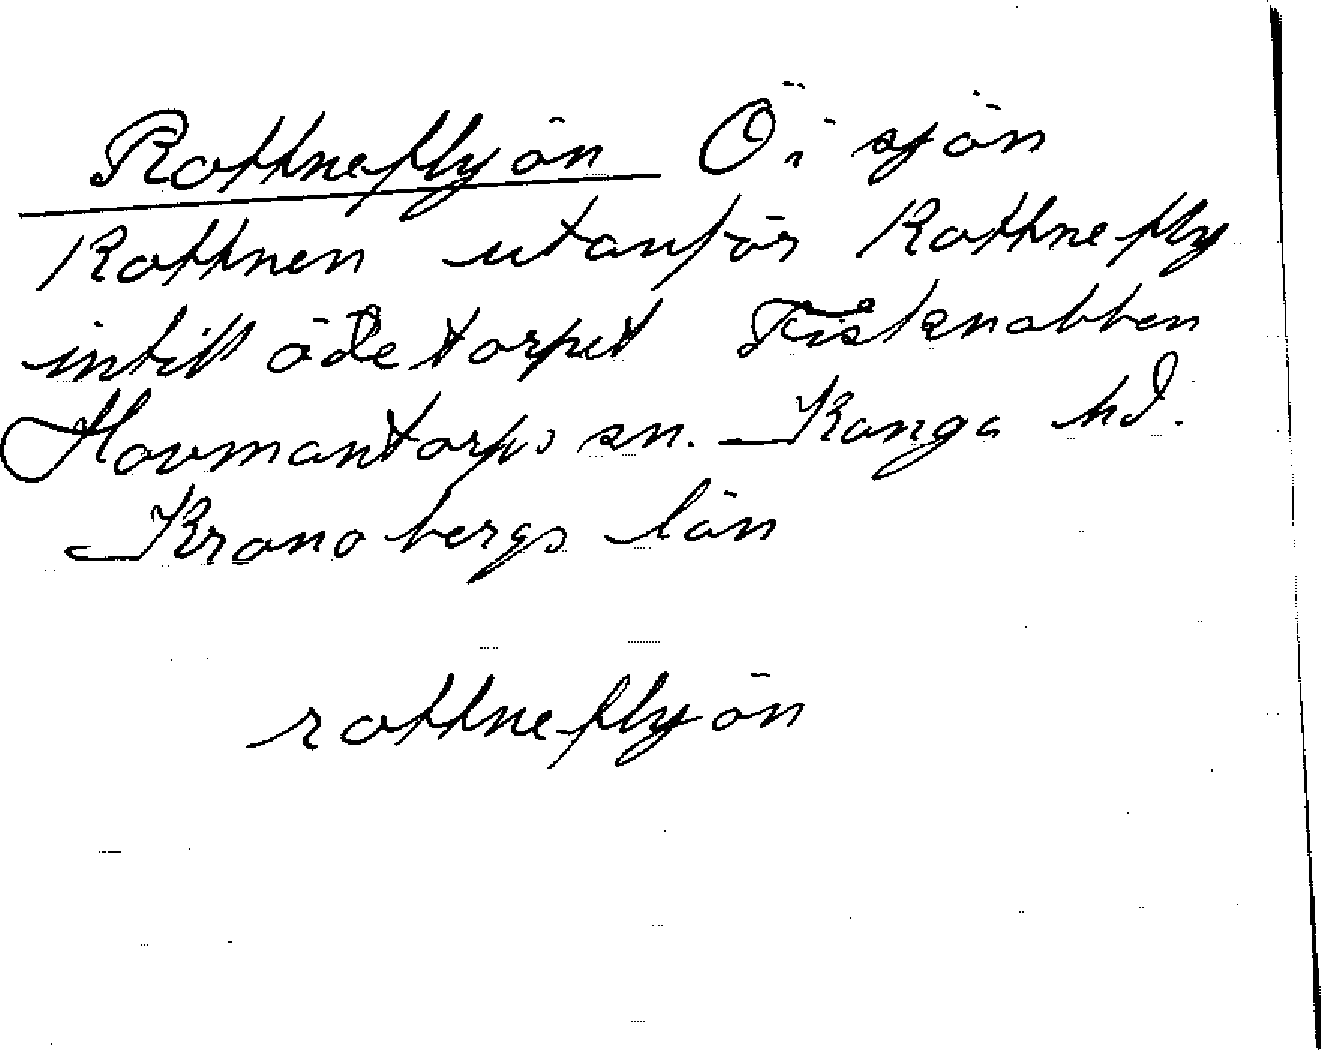 Rottneflyön Ö i sjön
Rottnen utanför Rottnefly
intill ödetorpet Fisknabben
Hovmantorps sn. Konga hd.
Kronobergs län
rottneflyön